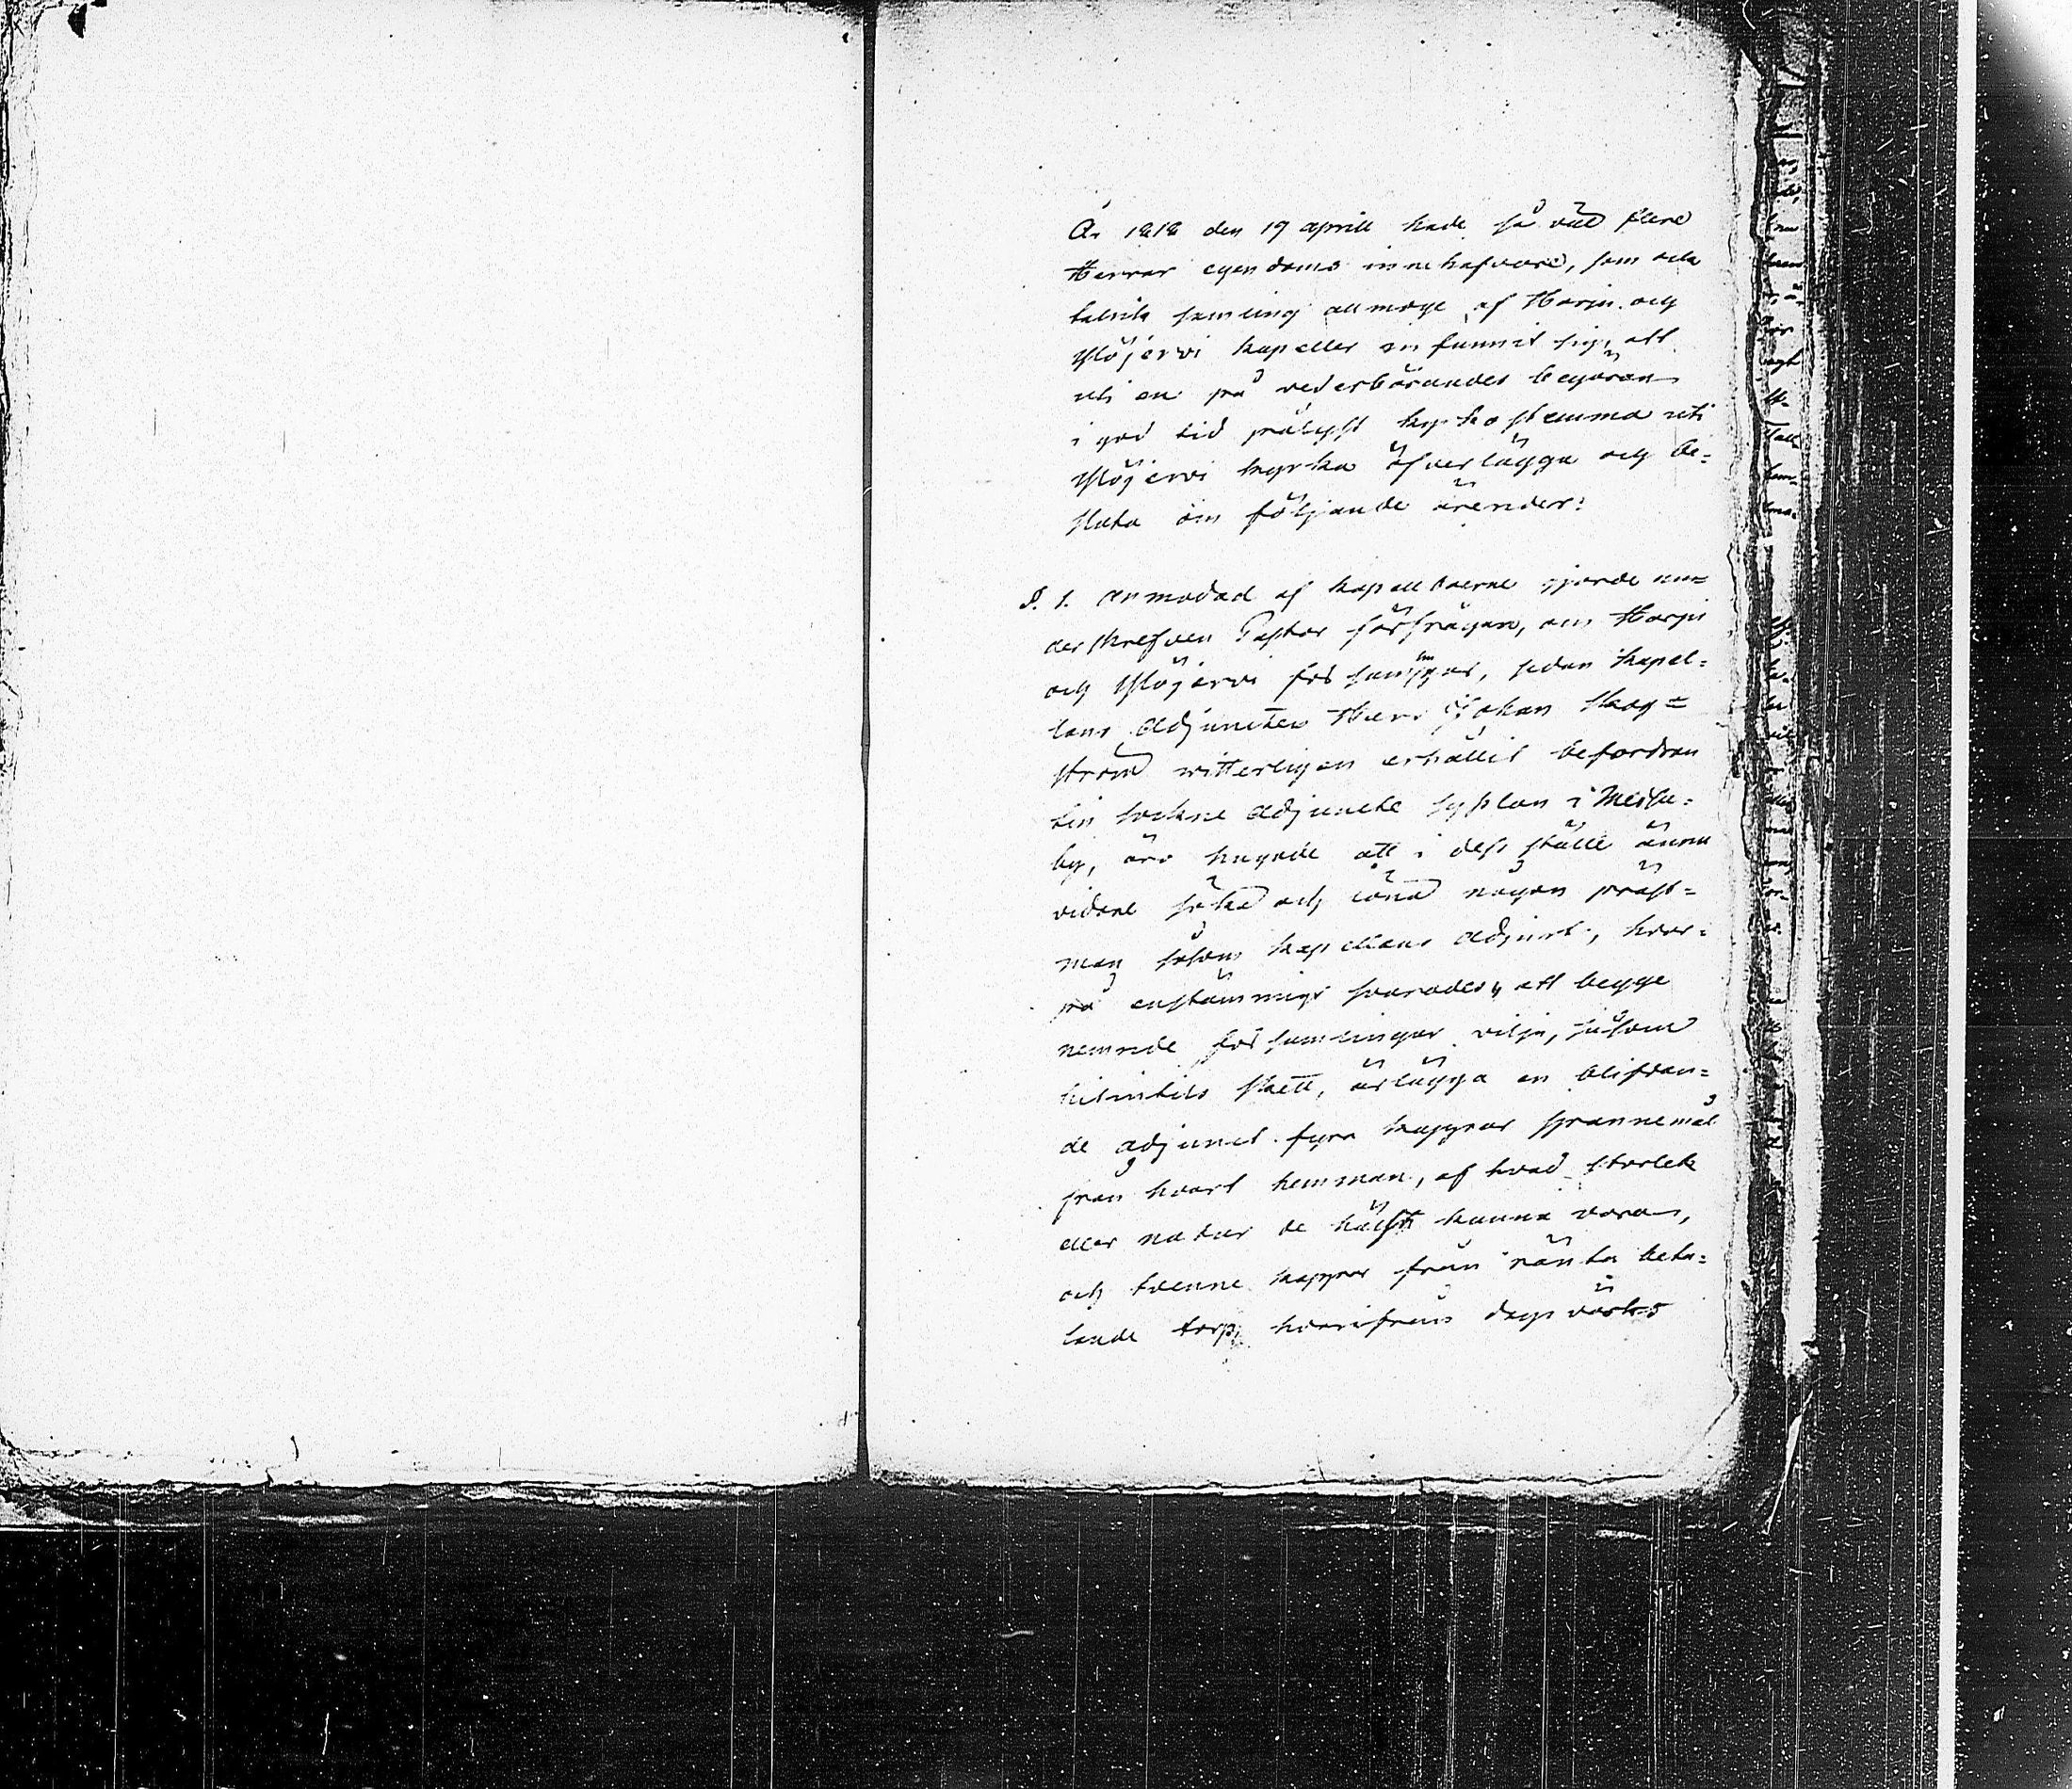 År 1818 den 19 aprill hade så väl flere
Herrar egendoms innehafvare, som ock
talrik samling allmoge af Harju och
Ylöjervi kapeller infunnit sig, att
uti en på vederbörandes begäran
i god tid pålyst kyrkostemma uti
Ylöjervi kyrka öfverlägga och be=
sluta om följande ärender:
§. 1. Anmodad af kapellboerne gjorde un=
derskrefven Pastor förfrågan, om Harju
och Ylöjervi församlingar, sedan kapel=
lans Adjuncten Herr Johan Skog=
ström witterligen erhållit befordran
till sockne adjuncts sysslan i Messu=
by, äro hugade att i dess ställe ännu
vidare söka och löna någon präst=
man såsom kapellans adjunct, hvar=
på enstämmigt svarades, att begge
nemnde församlingar vilja, såsom
hitintils skett, ärlägga en blifvan=
de adjunct fyra kappar spannemål
från hvart hemman, af hvad storlek
eller natur de hälst kunna vara,
och tvenne kappar från ränta beta=
lande torp, hvarifrån dags värks